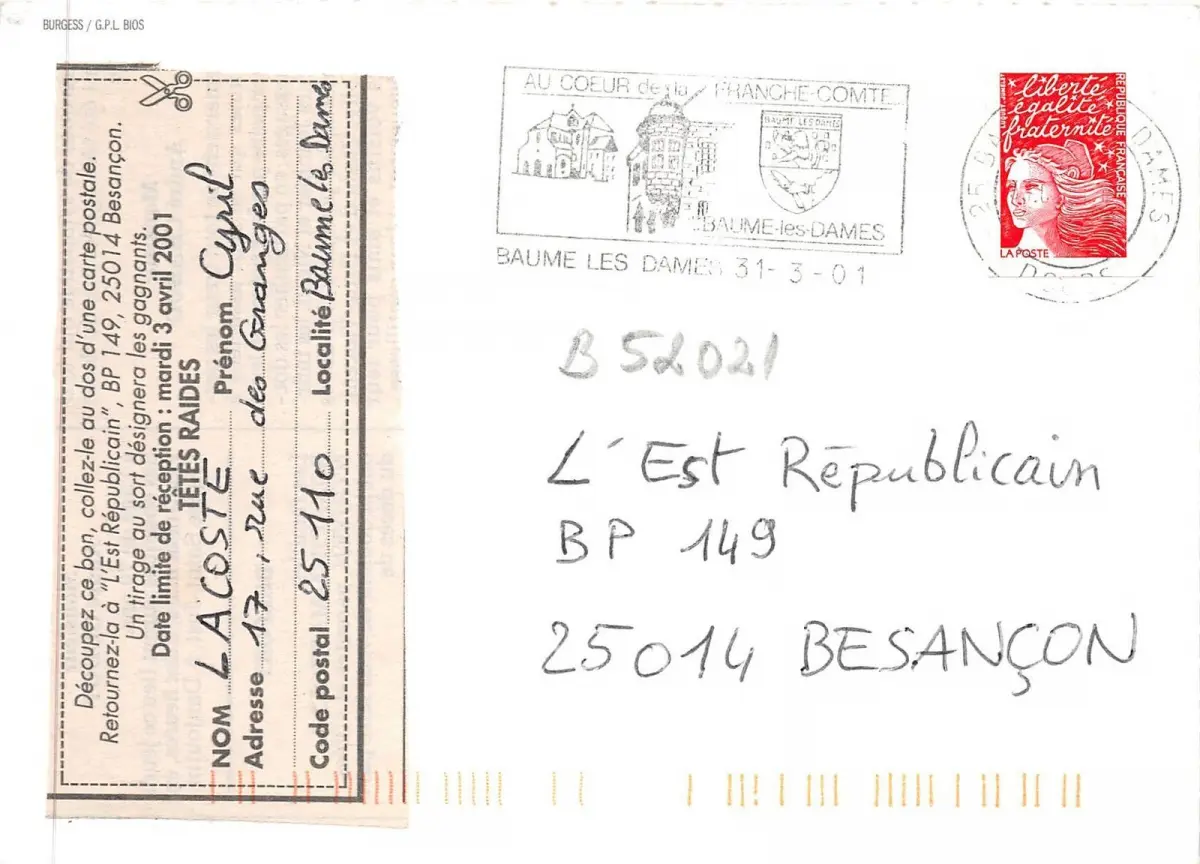 BURGESS / G.P.L. BIOS
Découpez ce bon, collez-le au dos d'une carte postale.
Retournez-la à "L'Est Républicain", BP 149, 25014 Besançon.
Un tirage au sort désignera les gagnants.
Date limite de réception : mardi 3 avril 2001
TÊTES RAIDES
NOM LACOSTE Prénom Cyril
Adresse 17, rue des Granges
Code postal 25110 Localité Baume les Dames
AU COEUR de la FRANCHE-COMTE
BAUME LES DAMES
BAUME-les-DAMES
BAUME LES DAMES 31-3-01
liberté
égalité
fraternité
RÉPUBLIQUE FRANÇAISE
LA POSTE
25 BA DAMES
DOUBS
B 52021
L'Est Républicain
BP 149
25014 BESANÇON